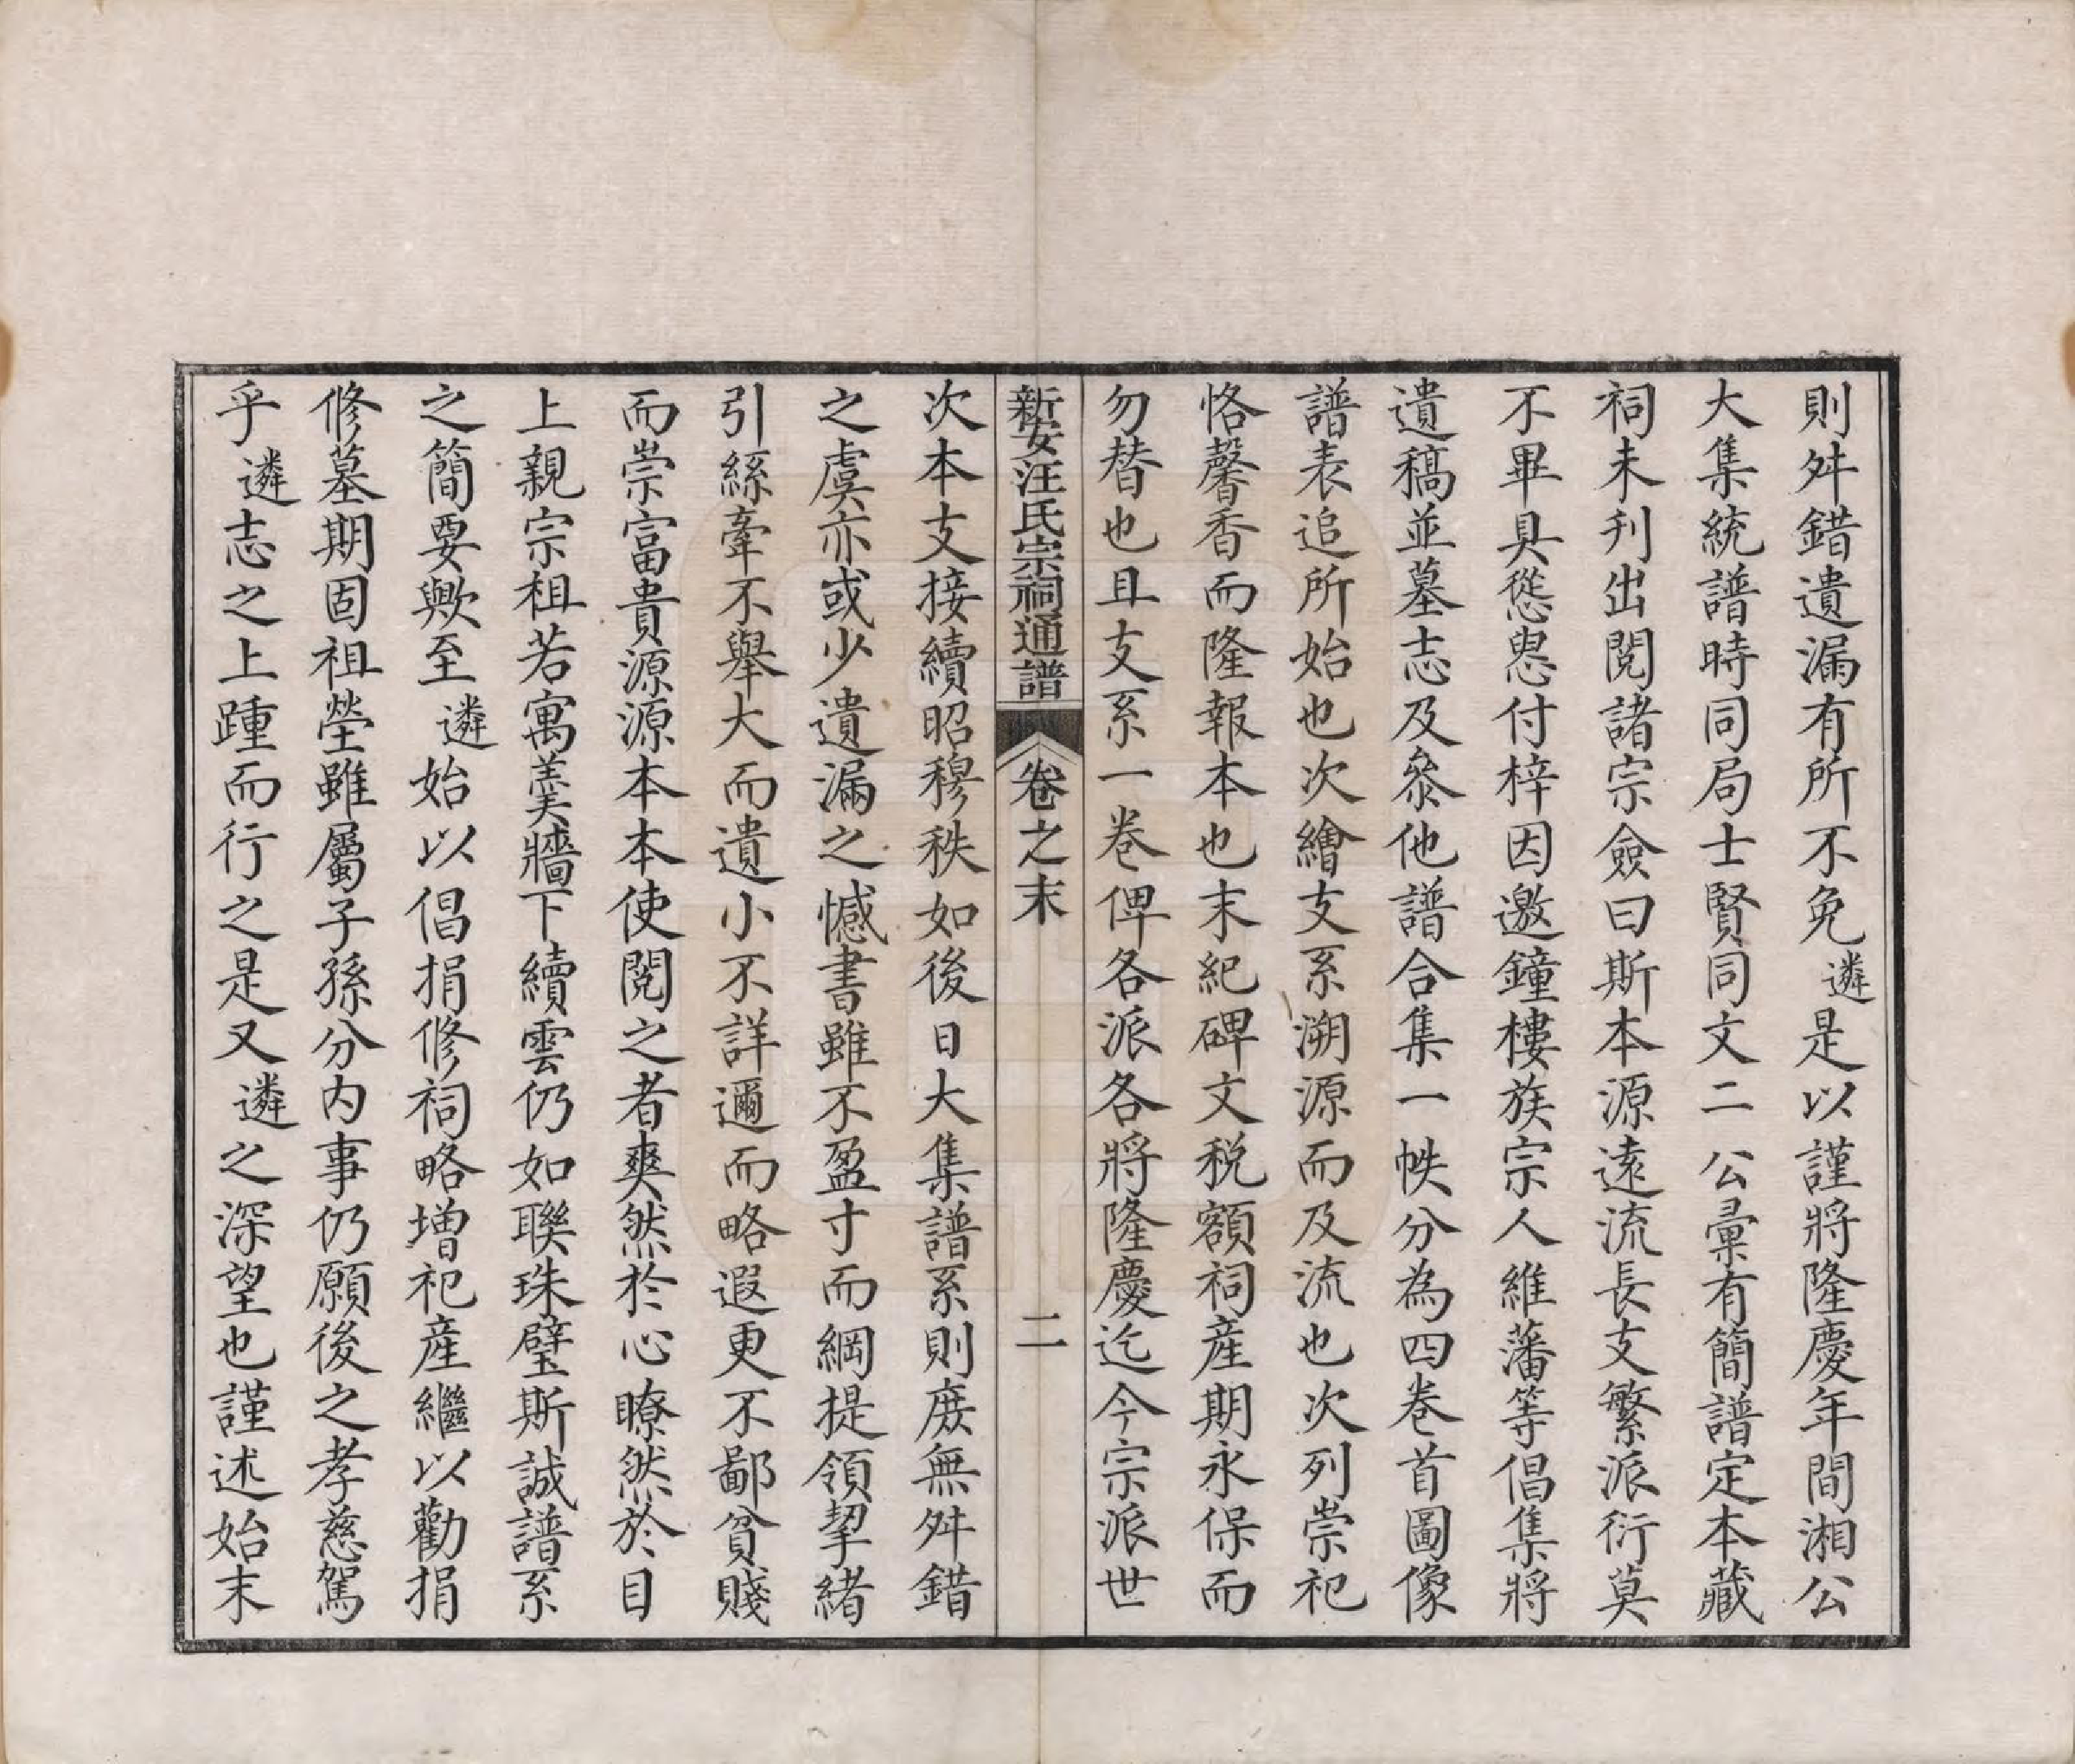 則舛錯遺漏有所不免遴是以謹將隆慶年間湘公
大集統譜時同局士賢同文二公彚有簡譜定本藏
祠未刋出閱諸宗僉曰斯本源遠流長支繁派衍莫
不畢具慫恿付梓因邀鐘樓族宗人維藩等倡集將
遺稿並墓志及叅他譜合集一帙分為四卷首圖像
譜表追所始也次繪支系溯源而及流也次列崇祀
恪馨香而隆報本也末紀碑文稅額祠產期永保而
勿替也且支系一卷俾各派各將隆慶迄今宗派世
新安汪氏宗祠通譜 卷之末 二
次本支接續昭穆秩如後日大集譜系則庻無舛錯
之虞亦或少遺漏之憾書雖不盈寸而綱提領挈緒
引絲牽不舉大而遺小不詳邇而略遐更不鄙貧賤
而崇富貴源源本本使閱之者爽然於心瞭然於目
上親宗祖若寓羹牆下續雲仍如聯珠璧斯誠譜系
之簡要歟至遴始以倡捐修祠略增祀產繼以勸捐
修墓期固祖塋雖屬子孫分內事仍願後之孝慈駕
乎遴志之上踵而行之是又遴之深望也謹述始末